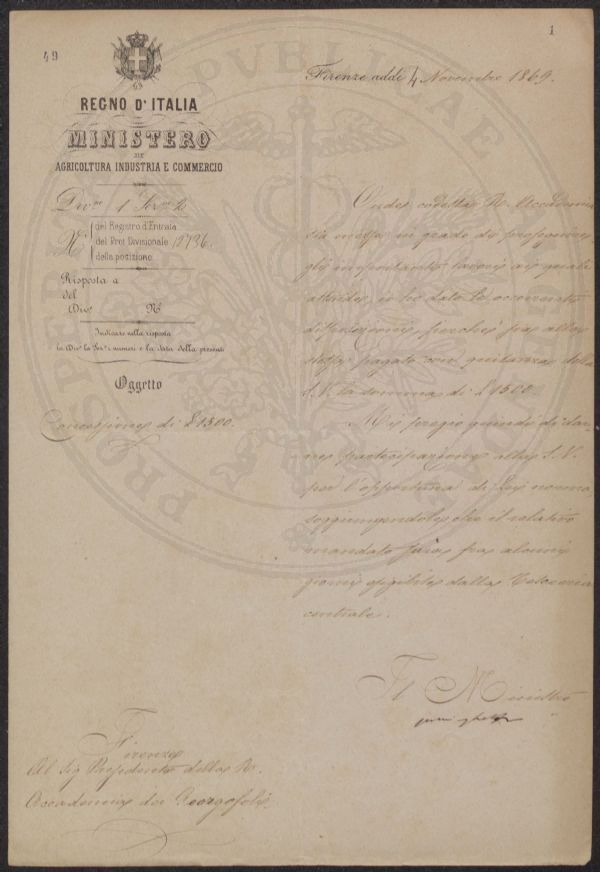 49
1
REGNO D'ITALIA
MINISTERO
DI
AGRICOLTURA INDUSTRIA E COMMERCIO
Firenze addì 4 Novembre 1869.
Div.ne 1a Sez.ne 2
N.
del Registro d'Entrata
del Prot. Divisionale 18736.
della posizione
Risposta a
del
Div.e N.
Indicare nella risposta
la Div. la Sez. i numeri e la data della presente
Oggetto
Concessione di £ 1500.
Onde codesta R. Accademia
sia messa in grado di proseguire
gli importanti lavori ai quali
attende, io ho dato le occorrenti
disposizioni, perchè sia alla
stessa pagato con quitanza della
S. V. la somma di £ 1500.
Mi pregio quindi di dar-
ne partecipazione alla S. V.
per l'opportuna di Lei norma,
soggiungendole che il relativo
mandato sarà fra alcuni
giorni esigibile dalla Tesoreria
centrale.
Il Ministro
Firenze
Al Sig Presidente della R.
Accademia dei Georgofili
PROSPERITATI PUBLICAE AUGENDAE